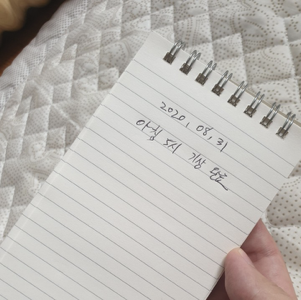 2020. 08. 31
아침 5시 기상 완료